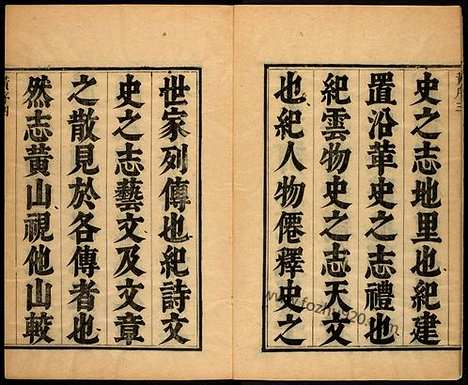 史之志地里也紀建
置沿革史之志禮也
紀雲物史之志天文
也紀人物僊釋史之
世家列傳也紀詩文
史之志藝文及文章
之散見於各傳者也
然志黃山視他山較